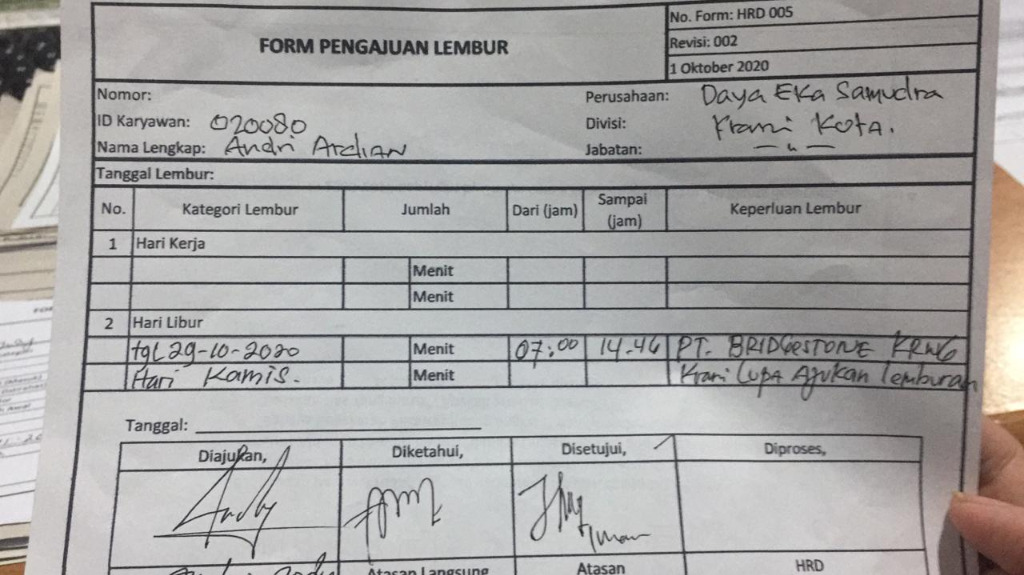 FORM PENGAJUAN LEMBUR
No. Form: HRD 005
Revisi: 002
1 Oktober 2020
Nomor:
Perusahaan: Daya Eka Samudra
ID Karyawan: 020080
Divisi: Krani Kota.
Nama Lengkap: Andri Ardian
Jabatan: — " —
Tanggal Lembur:
No. Kategori Lembur Jumlah Dari (jam) Sampai (jam) Keperluan Lembur
1 Hari Kerja
Menit
Menit
2 Hari Libur
tgl 29-10-2020 Menit 07:00 14.46 PT. BRIDGESTONE KRWG
Hari Kamis. Menit Krani Lupa Ajukan lemburan
Tanggal:
Diajukan, Diketahui, Disetujui, Diproses,
Iman
Atasan Langsung Atasan HRD